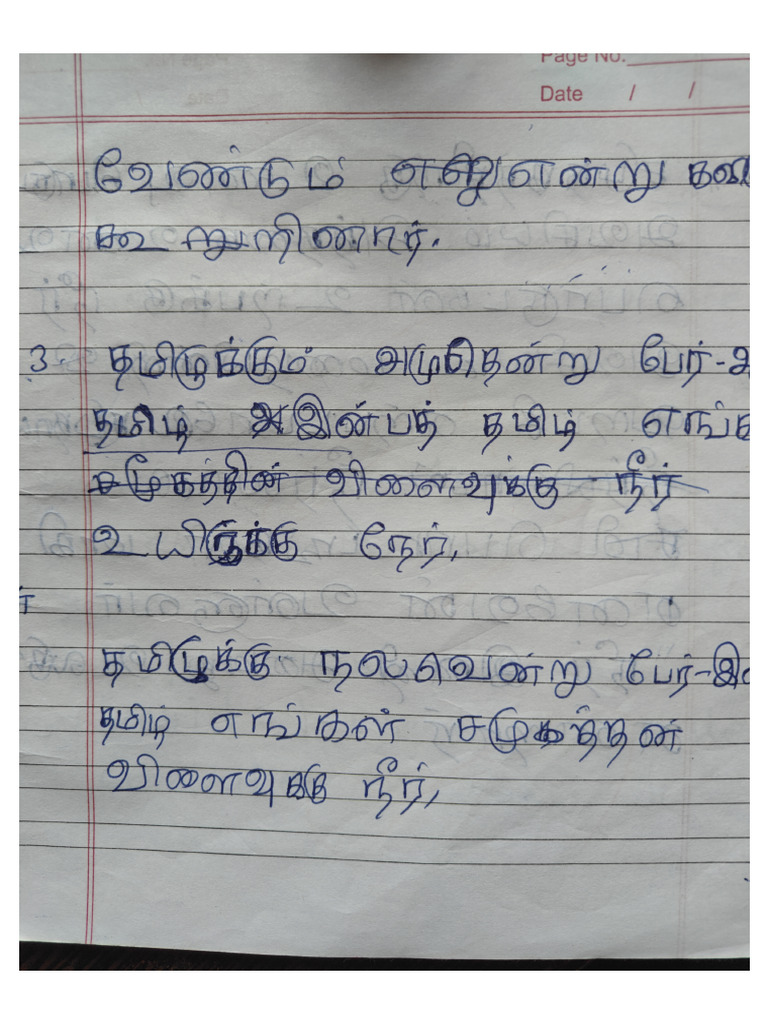 Page No.
Date / /
வேண்டும் என்று
கூறுறினார்.
3. தமிழுக்கும் அமுதென்று பேர்-அ
தமிழ் இன்பத் தமிழ் எங்க
சமூகத்தின் விளைவுக்கு நீர்
உயிருக்கு நேர்,
தமிழுக்கு நலவென்று பேர்-இ
தமிழ் எங்கள் சமுகத்தன்
விளைவுக்கு நீர்,